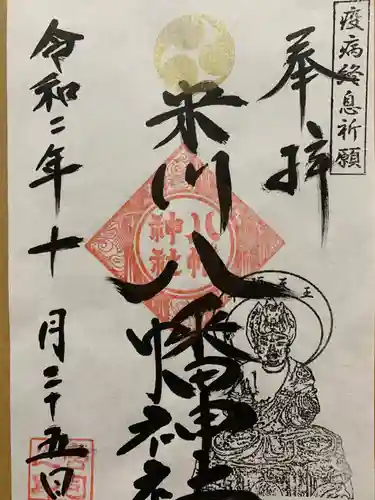 疫病終息祈願
奉拝
米川八幡神社
八幡
神社
令和二年十月二十五日